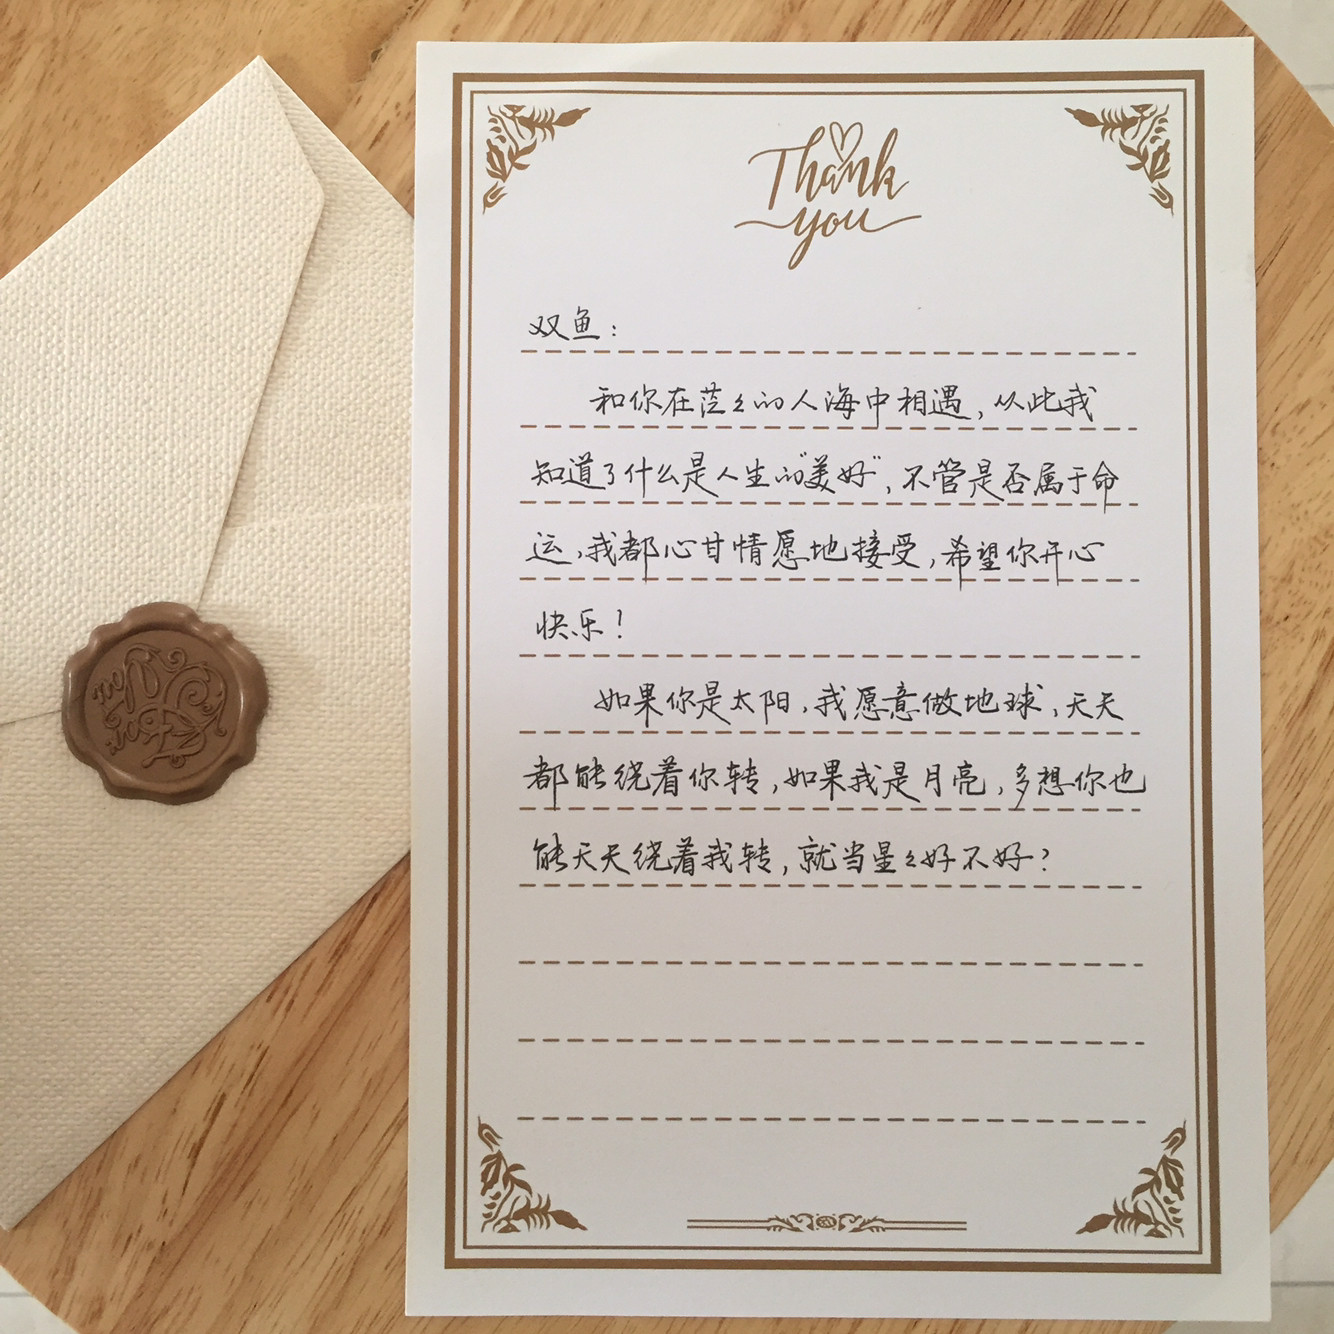 Thank
you
双鱼：
和你在茫々的人海中相遇，从此我
知道了什么是人生的"美好"，不管是否属于命
运，我都心甘情愿地接受，希望你开心
快乐！
如果你是太阳，我愿意做地球，天天
都能绕着你转，如果我是月亮，多想你也
能天天绕着我转，就当星々好不好？